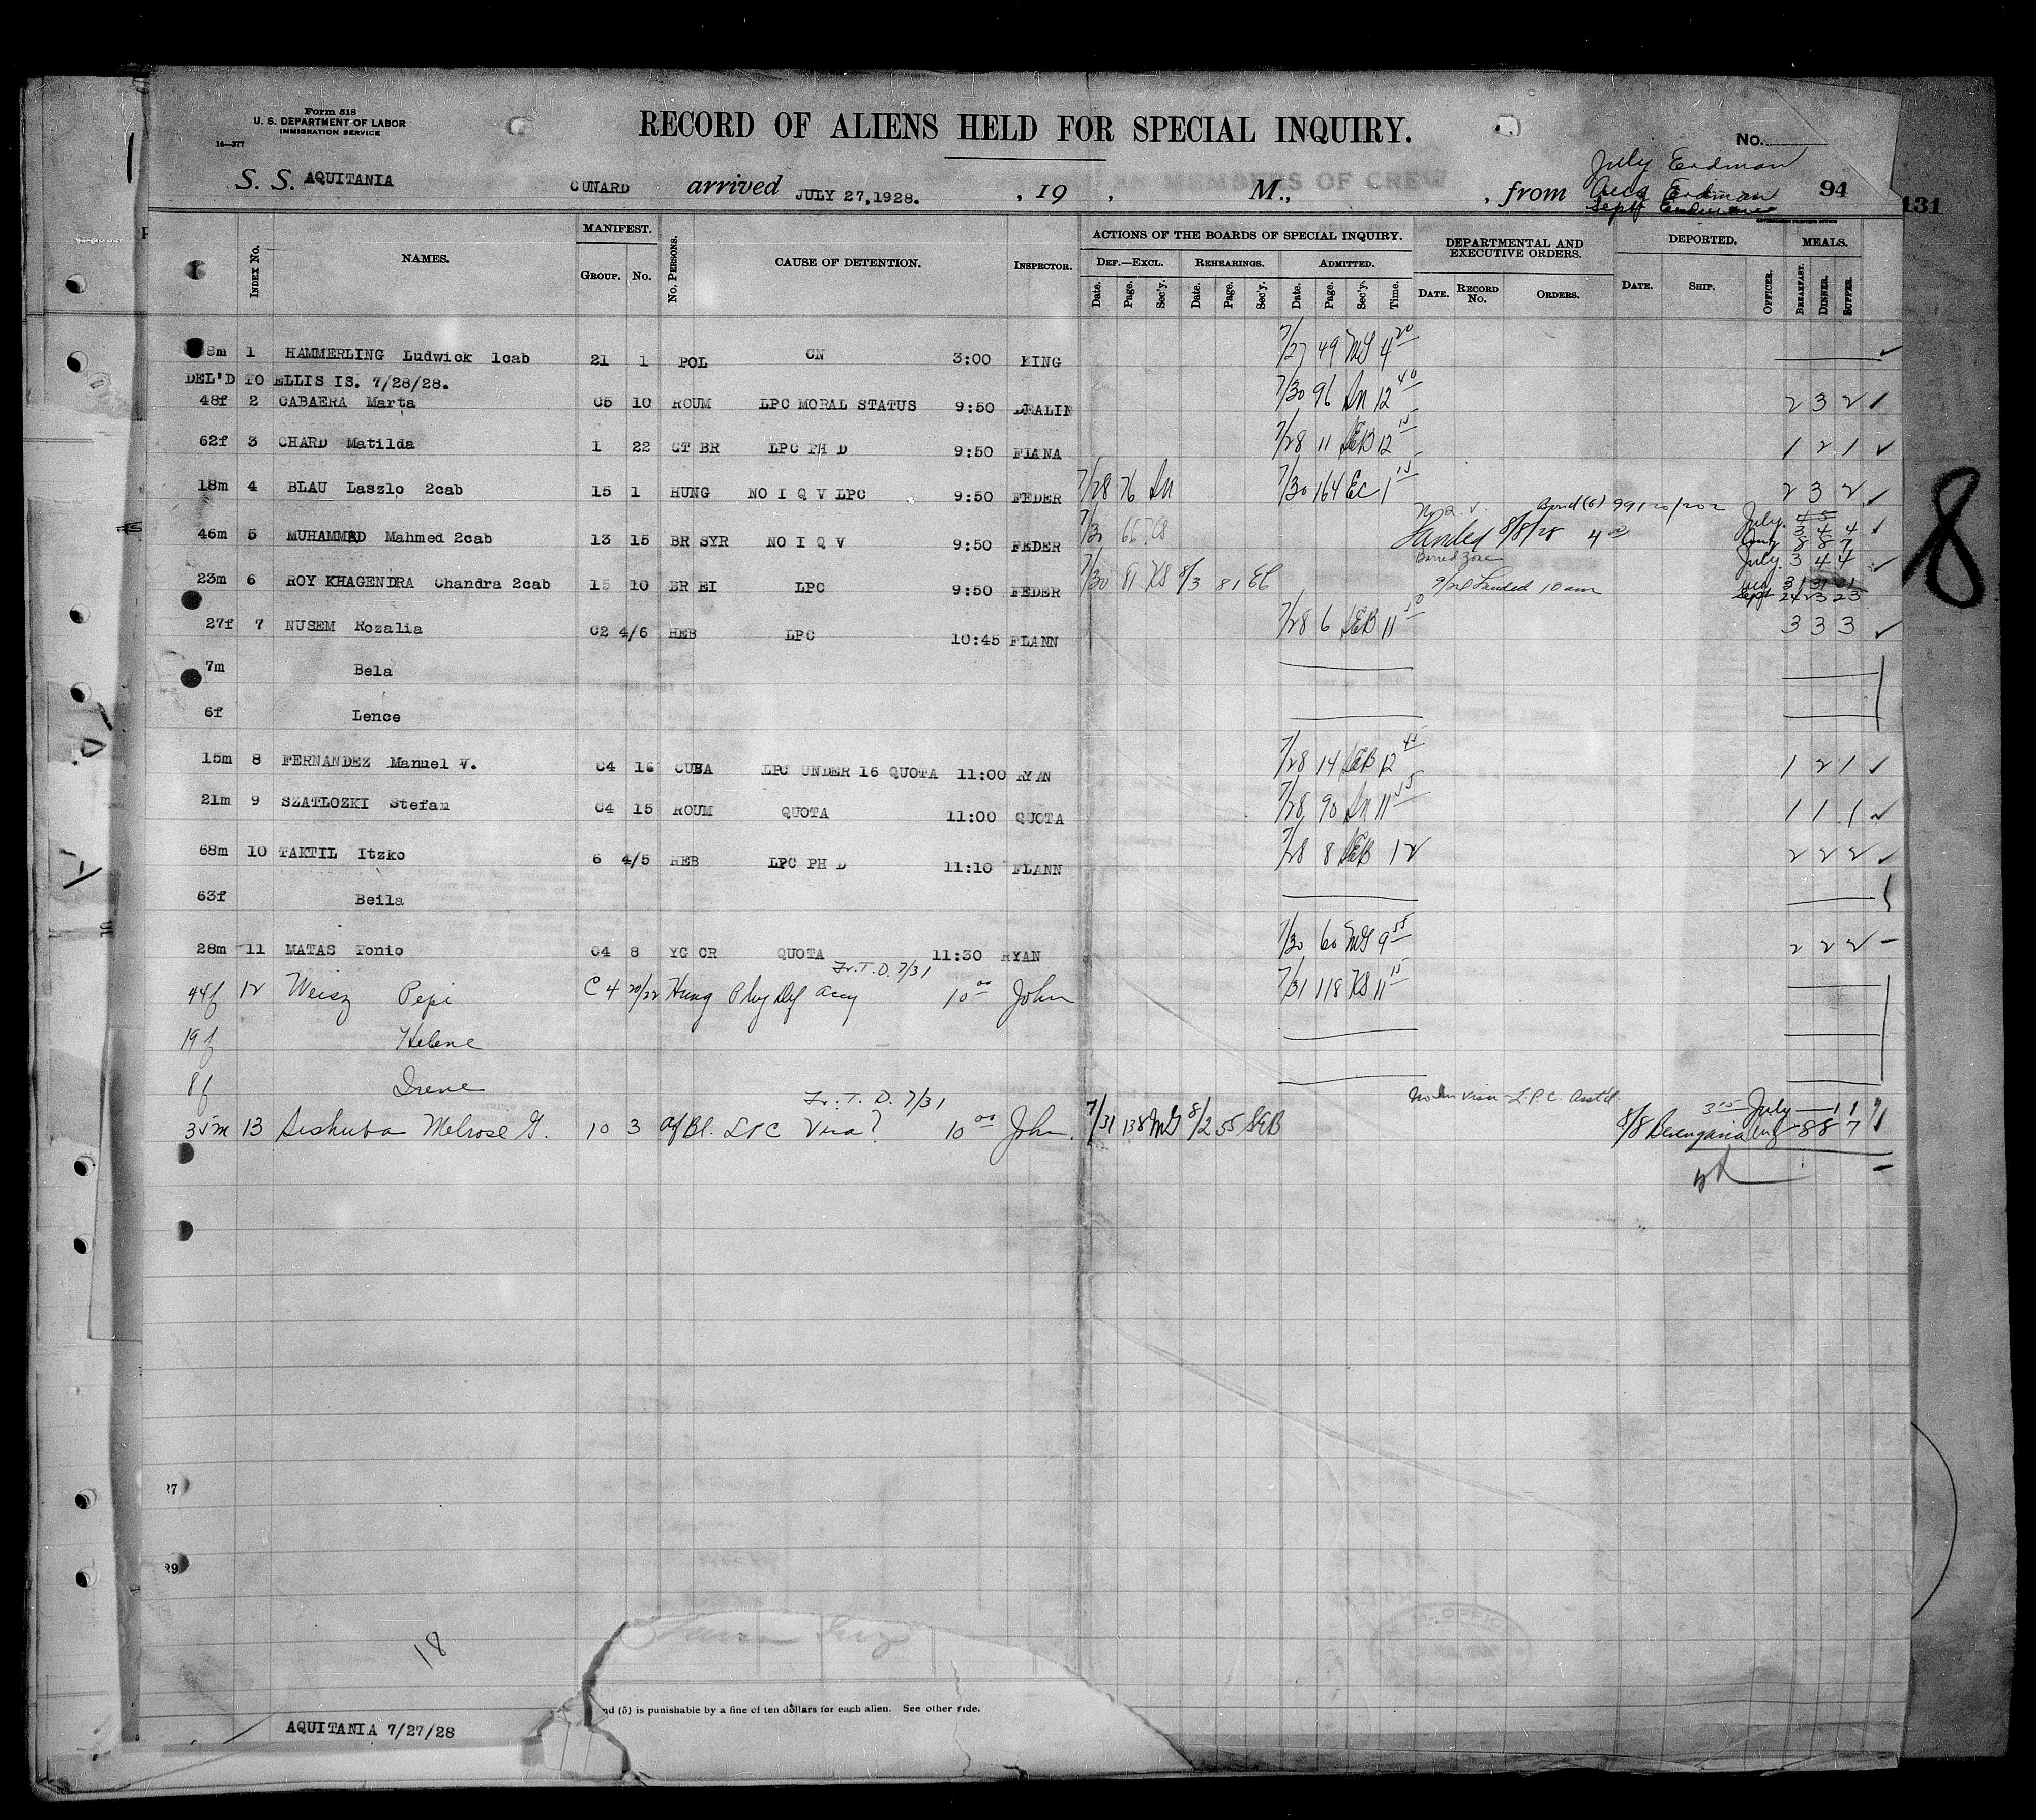 Form 518
U. S. DEPARTMENT OF LABOR
IMMIGRATION SERVICE
14—377
RECORD OF ALIENS HELD FOR SPECIAL INQUIRY.
No.
S. S. AQUITANIA CUNARD arrived JULY 27,1928. , 19 , M., , from
MEMBERS OF CREW
July Erdman
Aug Erdman
Sept Erdman
94
131
INDEX NO. NAMES. MANIFEST. GROUP. NO. NO. PERSONS. CAUSE OF DETENTION. INSPECTOR. ACTIONS OF THE BOARDS OF SPECIAL INQUIRY. DEPARTMENTAL AND EXECUTIVE ORDERS. DEPORTED. MEALS.
DEF.—EXCL. REHEARINGS. ADMITTED.
Date. Page. Sec'y. Date. Page. Sec'y. Date. Page. Sec'y. Time. DATE. RECORD NO. ORDERS. DATE. SHIP. OFFICER. BREAKFAST. DINNER. SUPPER.
8m 1 HAMMERLING Ludwick 1cab 21 1 POL CN 3:00 KING 7/27 49 MG 4 20
DEL'D TO ELLIS IS. 7/28/28.
48f 2 CABAERA Marta C5 10 ROUM LPC MORAL STATUS 9:50 DEALIN 7/30 96 Sn 12 40 2 3 2
62f 3 CHARD Matilda 1 22 GT BR LPC PH D 9:50 FIANA 7/28 11 SEB 12 15 1 2 1
18m 4 BLAU Laszlo 2cab 15 1 HUNG NO I Q V LPC 9:50 FEDER 7/28 76 Sn 7/30 164 EC 1 15 2 3 2
46m 5 MUHAMMAD Mahmed 2cab 13 15 BR SYR NO I Q V 9:50 FEDER 7/30 66 Landed 8/8/28 4 00 July 3 4 4
Aug 8 8 7
Barred Zone
23m 6 ROY KHAGENDRA Chandra 2cab 15 10 BR EI LPC 9:50 FEDER 7/30 81 KS 8/3 81 EC Landed 10 am July 3 4 4
Aug 31 31 31
Sept 24 23 23
27f 7 NUSEM Rozalia C2 4/6 HEB LPC 10:45 FLANN 7/28 6 SEB 11 50 3 3 3
7m Bela
6f Lence
15m 8 FERNANDEZ Manuel V. C4 16 CUBA LPC UNDER 16 QUOTA 11:00 RYAN 7/28 14 SEB 12 45 1 2 1
21m 9 SZATLOZKI Stefan C4 15 ROUM QUOTA 11:00 QUOTA 7/28 90 Sn 11 55 1 1 1
68m 10 TAKTIL Itzko 6 4/5 HEB LPC PH D 11:10 FLANN 7/28 8 SEB 12 2 2 2
63f Beila
28m 11 MATAS Tonio C4 8 YG CR QUOTA 11:30 RYAN 7/30 60 MG 9 55 2 2 2
Fr. T. D. 7/31
44f 12 Weisz Pepi C4 20/22 Hung Phy Def Accy 10 00 John 7/31 118 KS 11 15
19f Helene
8f Irene
Fr. T. D. 7/31
35m 13 Sishuba Melrose G. 10 3 Af Bl. LPC Visa? 10 00 John. 7/31 138 MG 8/2 55 SEB 8/8 Berengaria July 1 1
Aug 8 8 7
8
27
29
18
nd (5) is punishable by a fine of ten dollars for each alien. See other side.
AQUITANIA 7/27/28